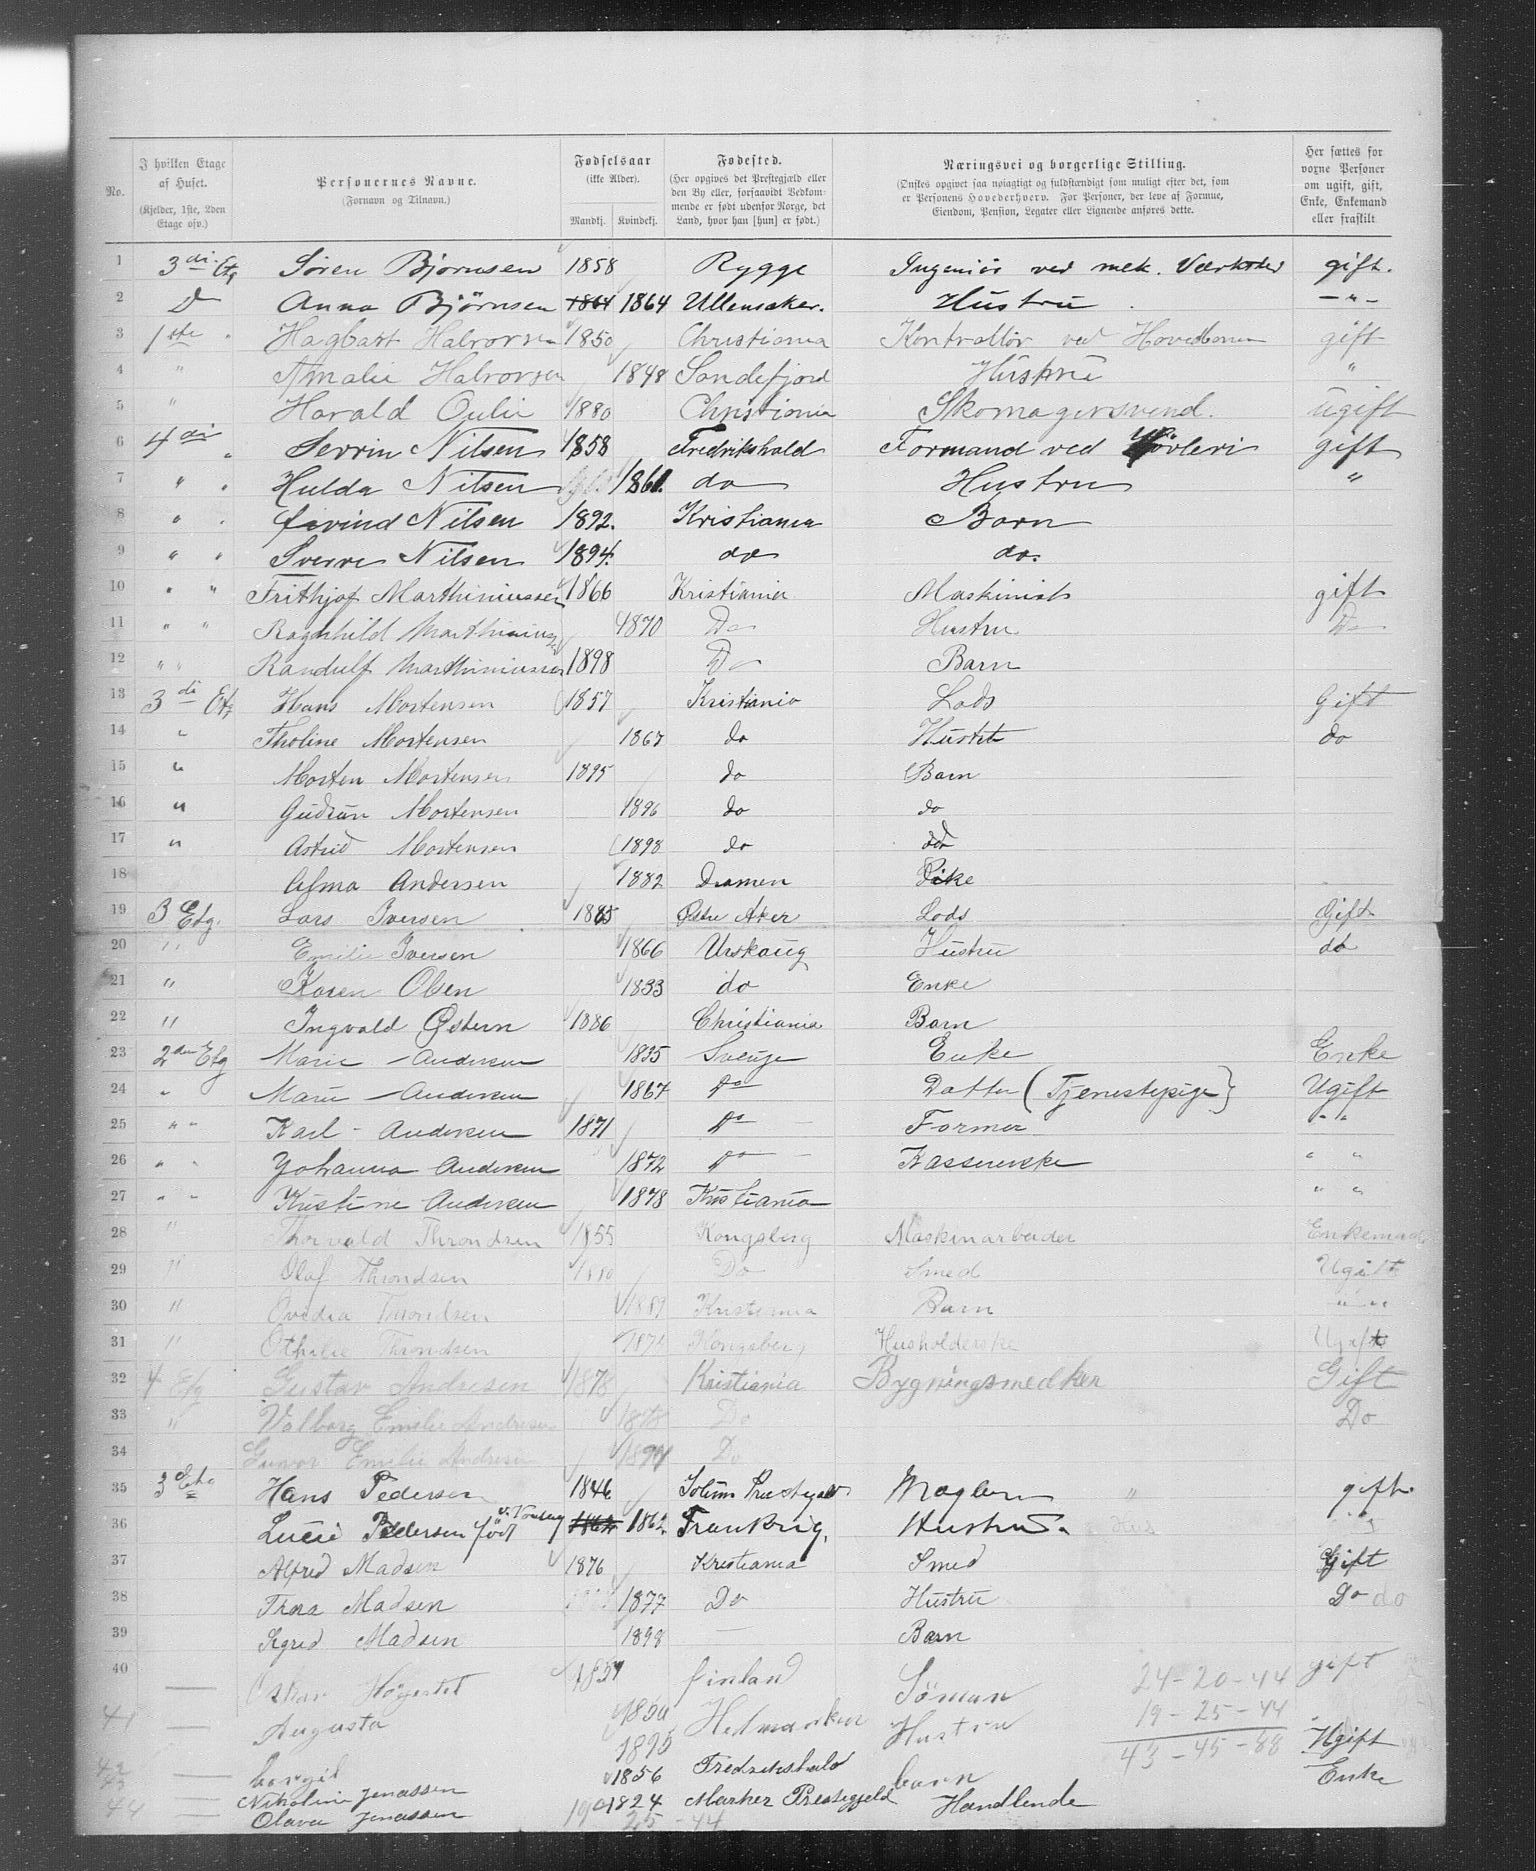 No. | I hvilken Etage af Huset. (Kjelder, 1ste, 2den Etage osv.) | Personernes Navne. (Fornavn og Tilnavn.) | Fødselsaar (ikke Alder). Mandkj. Kvindekj. | Fødested. (Her opgives det Prestegjæld eller den By eller, forsaavidt Vedkommende er født udenfor Norge, det Land, hvor han [hun] er født.) | Næringsvei og borgerlige Stilling. (Ønskes opgivet saa nøiagtigt og fuldstændigt som muligt efter det, som er Personens Hovederhverv. For Personer, der leve af Formue, Eiendom, Pension, Legater eller Lignende anføres dette. | Her sættes for voxne Personer om ugift, gift, Enke, Enkemand eller fraskilt
1 3die Etg Søren Bjørnsen 1858 Rygge Ingeniør ved mek. Værksted gift.
2 D Anna Bjørnsen 1864 1864 Ullensaker. Hustru — " —
3 1ste " Hagbart Halvorsen 1850 Christiania Kontrollør ved Hovedbanen gift
4 " Amalie Halvorsen 1848 Sandefjord Hustru "
5 " Harald Oulie 1880 Christiania Skomagersvend. ugift
6 4di " Sevrin Nilsen 1858 Fredrikshald Formand ved Høvleri gift
7 " " Hulda Nilsen 1861. do Hustru "
8 " " Eivind Nilsen 1892. Kristiania Barn
9 " " Sverre Nilsen 1894. do do.
10 " " Frithjof Marthiniussen 1866 Kristiania Maskinist gift
11 " " Ragnhild Marthinius 1870 Do Hustru Do
12 " " Randulf Marthiniussen 1898 Do Barn
13 3di Etg Hans Mortensen 1857 Kristiania Lods Gift
14 " Tholine Mortensen 1867 do Hustru do
15 " Morten Mortensen 1895 do Barn
16 " Gudrun Mortensen 1896 do do
17 " Astrid Mortensen 1898 do do
18 Alma Andersen 1882 Dramen Pike
19 3 Etg. Lars Iversen 1865 Østre Aker Lods Gift
20 " Emilie Iversen 1866 Urskoug Hustru do
21 " Karen Olsen 1833 do Enke
22 " Ingvald Østern 1886 Christiania Barn
23 2den Etg Marie Andersen 1835 Sverige Enke Enke
24 " Marie Andersen 1867 Do Datter (Tjenestepige) Ugift
25 " " Karl Andersen 1871 Do Former " "
26 " " Johanna Andersen 1872 Do Kassererske " "
27 " " Kristine Andersen 1878 Kristiania " "
28 " Thorvald Throndsen 1855 Kongsberg Maskinarbeider Enkemand
29 " Olaf Throndsen 1880 Do Smed Ugift
30 " Ovedia Throndsen 1889 Kristiania Barn " "
31 " Othilie Throndsen Kongsberg Husholderske Ugift
32 4 Etg Gustav Andresen 1878 Kristiania Bygningssnedker Gift
33 " Valborg Emilie Andresen 1878 Do Do
34 Gunvor Emilie Andresen Do
35 3 Etg Hans Pedersen 1846 Solum Prestegjeld Mægler " gift
36 Lucie Pedersen født 1862 1862. Frankrig. Hustru. " "
37 Alfred Madsen 1876 Kristiania Smed Gift
38 Thora Madsen 1877 Do Hustru Do do
39 Sigrid Madsen 1898 — Barn
40 — Oskar 1857 finland Söman 24-20-44 gift
41 — Augusta 1850 Hustru 19-25-44
42 — 1895 barn 43-45-88
43 — Nikoline Jonassen 1856 Fredrikshald Ugift
44 — Olava Jonassen 1824 Marker Prestegjeld Handlende Enke
19 25 - 44